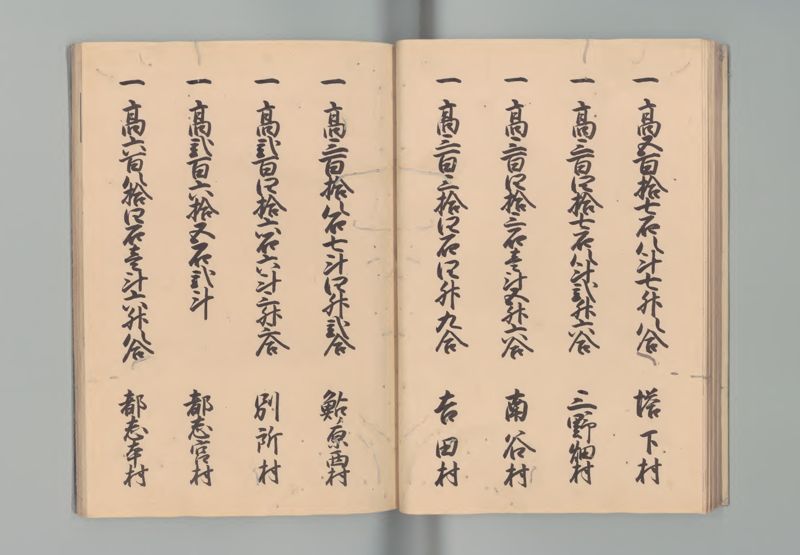 一 高五百拾七石八斗七升八合 塔下村
一 高三百四拾七石八斗弐升六合 三野畑村
一 高三百四拾三石壱斗五升六合 南谷村
一 高三百三拾四石四升九合 吉田村
一 高三百拾八石七斗四升弐合 鮎原西村
一 高弐百四拾六石六斗三升六合 別所村
一 高弐百六拾五石弐斗 都志宮村
一 高六百八拾四石壱斗六升八合 都志本村